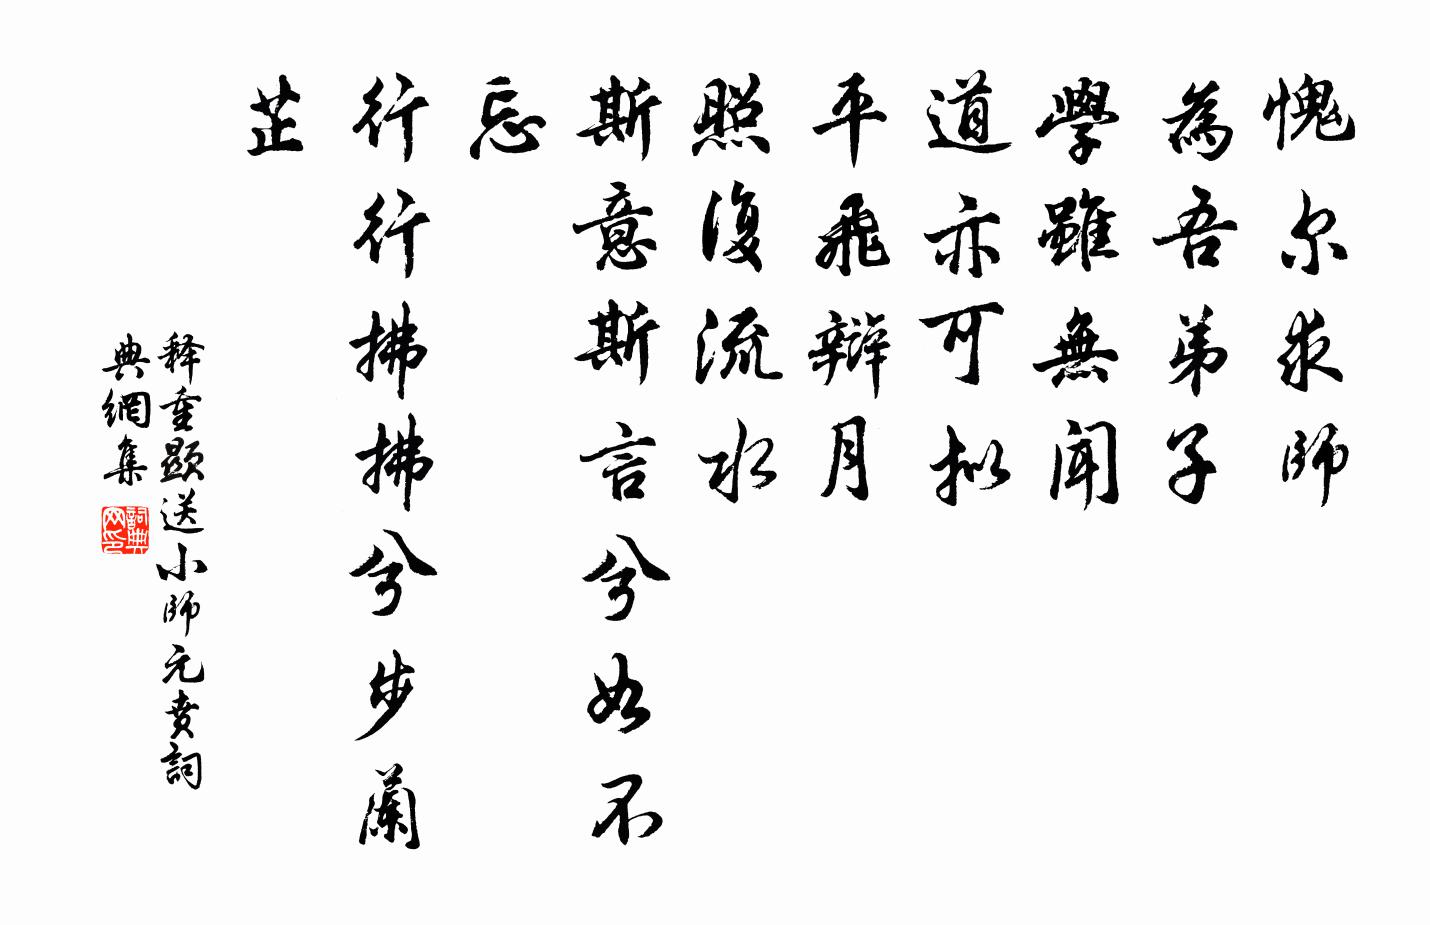 愧尔求師
為吾弟子
學雖無聞
道亦可拟
平飛辯月
照復流水
斯意斯言兮如不
忘
行行拂拂兮步蘭
芷
释重顯送小師元贲詞
典網集
詞典
网印